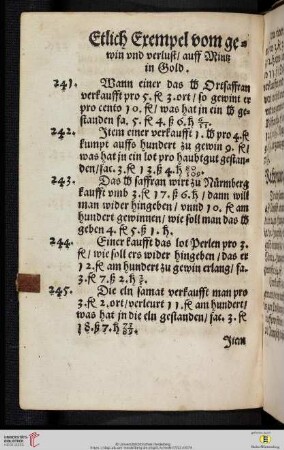 Etlich Exempel vom ge-
win vnd verlust/ auff Müntz
in Gold.
241. Wann einer das ℔ Ortsaffran
verkaufft pro 5. fl. 3. ort/ so gewint er
pro cento 10. fl/ was hat jn ein ℔ ge-
standen fa. 5. fl. 4. ß 6. h
242. Item einer verkaufft 1. ℔ pro 4. fl
kumpt auffs hundert zu gewin 9. fl/
was hat jn ein lot pro haubtgut gestan-
den/ fac. 3. fl 13. ß 4. h
243. Das ℔ saffran wirt zu Nürmberg
kaufft vmb 3. fl 17. ß 6. h/ dann will
man wider hingeben/ vnnd 10. fl am
hundert gewinnen/ wie soll man das ℔
geben 4. fl 5. ß 1. h.
244. Einer kaufft das lot Perlen pro 3.
fl/ wie soll ers wider hingeben/ das er
12. fl am hundert zu gewin erlang/ fa.
3. fl 7. ß 2. h
245. Die eln samat verkaufft man pro
3. fl 2. ort/ verleurt 11. fl am hundert/
was hat jn die eln gestanden/ fac. 3. fl
18. ß 7. h
Item